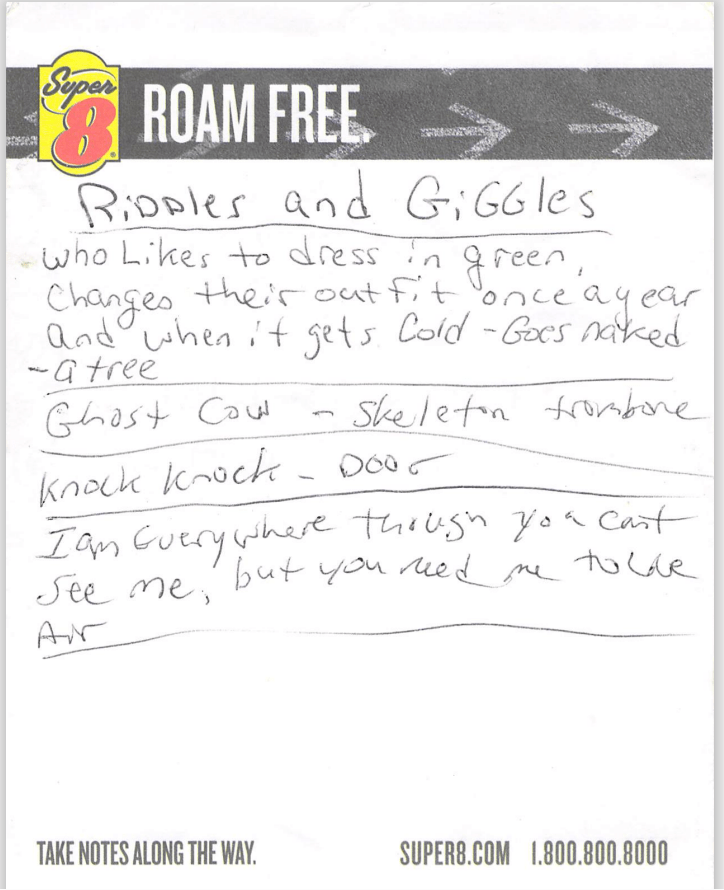 Super 8 ROAM FREE.
Riddles and GiGGles
who Likes to dress in green,
Changes their outfit once a year
and when it gets Cold - Goes naked
- a tree
Ghost Cow - Skeleton trombone
Knock Knock - Door
I am Everywhere though you cant
See me, but you need me to
Air
TAKE NOTES ALONG THE WAY. SUPER8.COM 1.800.800.8000